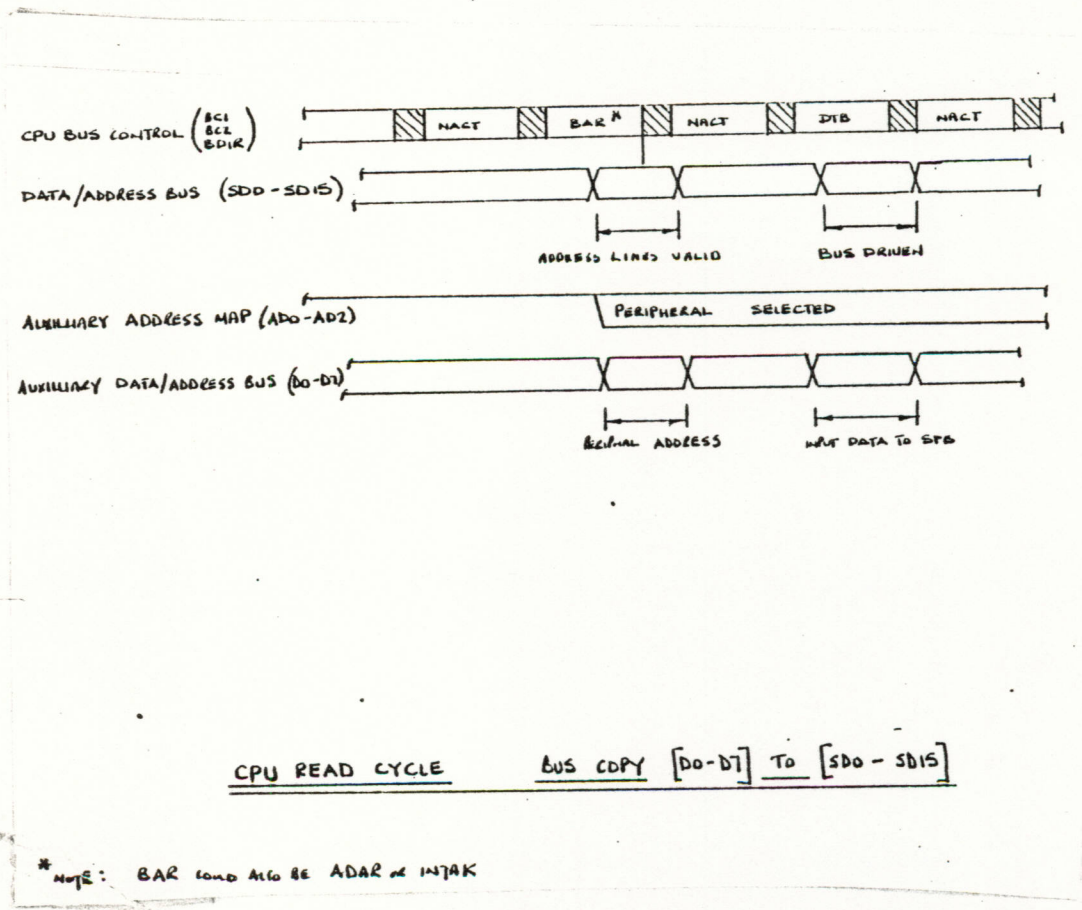 CPU BUS CONTROL (BC1 BC2 BDIR)
NACT BAR* NACT DTB NACT
DATA/ADDRESS BUS (SD0 - SD15)
ADDRESS LINES VALID BUS DRIVEN
AUXILLIARY ADDRESS MAP (AD0-AD2)
PERIPHERAL SELECTED
AUXILLIARY DATA/ADDRESS BUS (D0-D7)
PERIPHAL ADDRESS INPUT DATA TO SPB
CPU READ CYCLE BUS COPY [D0-D7] TO [SD0 - SD15]
* NOTE: BAR COULD ALSO BE ADAR OR INTAK